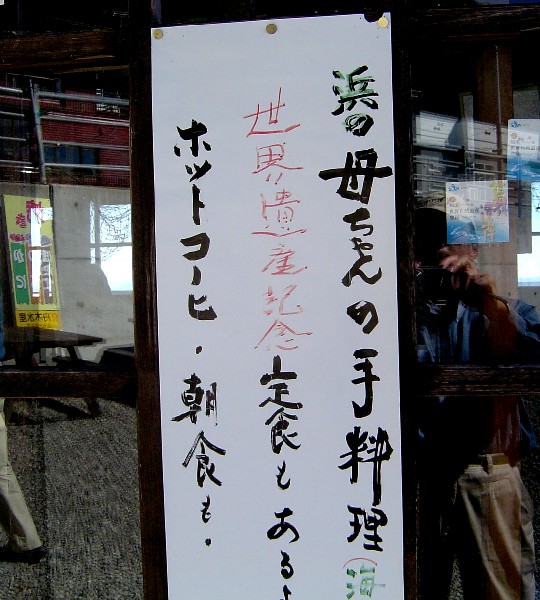 浜の母ちゃんの手料理(海
世界遺産記念定食もあるよ
ホットコーヒ・朝食も・